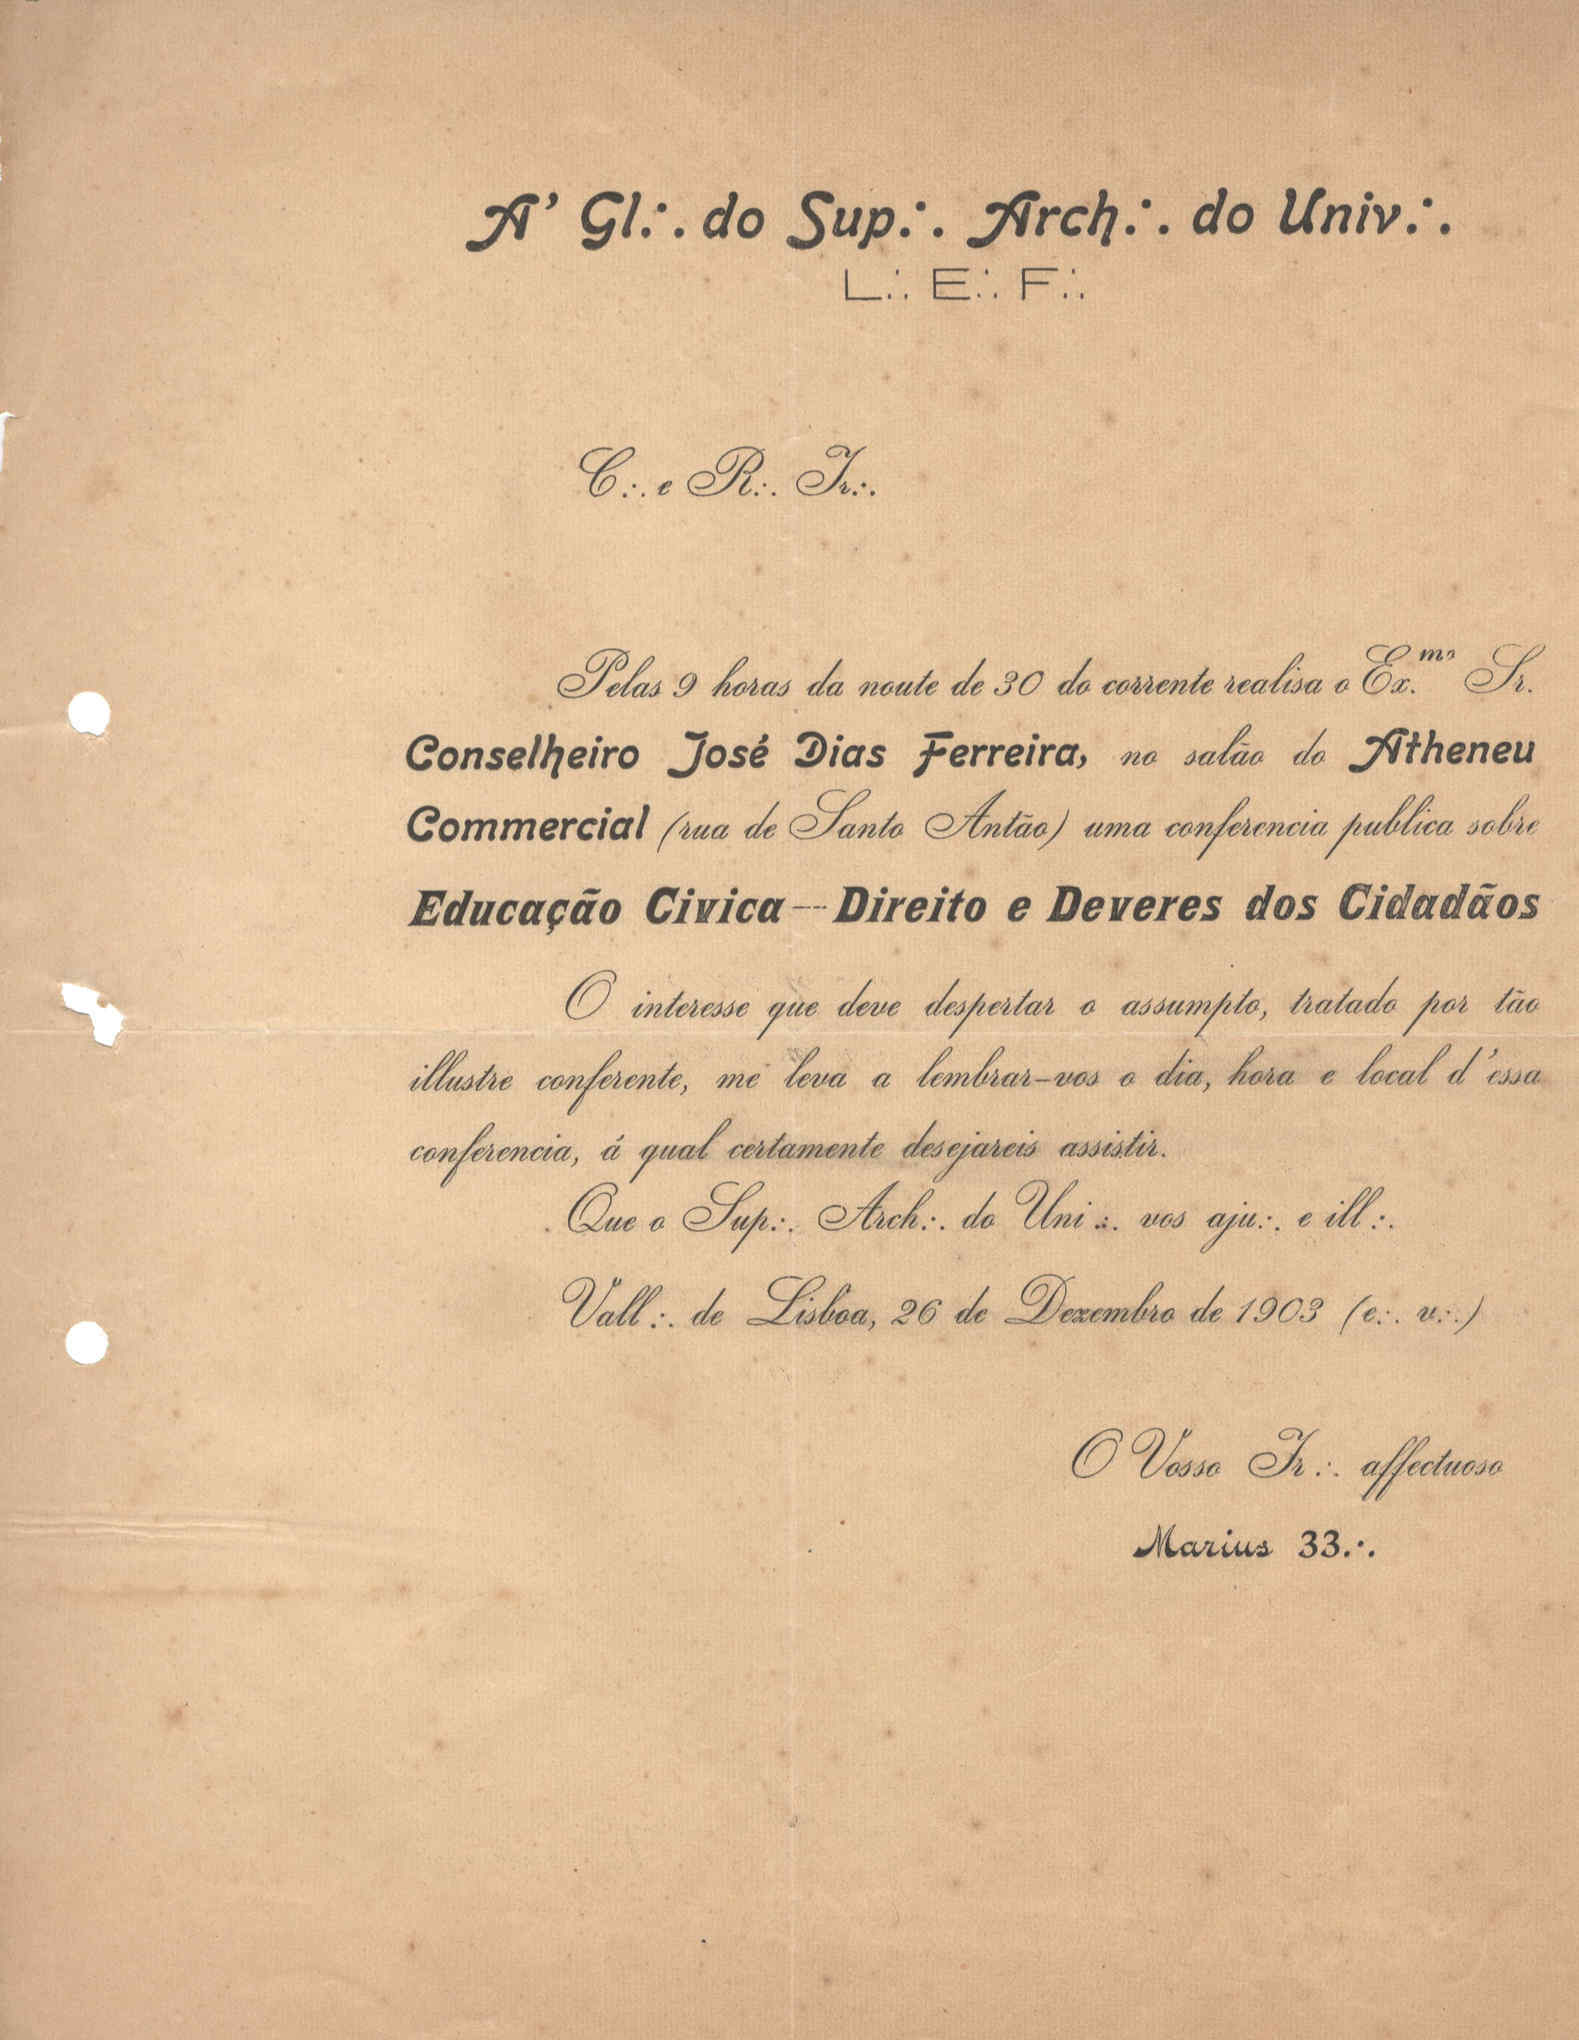 A' Gl∴ do Sup∴ Arch∴ do Univ∴
L∴ E∴ F∴
C∴ e R∴ Ir∴
Pelas 9 horas da noute de 30 do corrente realisa o Ex.mo Sr.
Conselheiro José Dias Ferreira, no salão do Atheneu
Commercial (rua de Santo Antão) uma conferencia publica sobre
Educação Civica—Direito e Deveres dos Cidadãos
O interesse que deve despertar o assumpto, tratado por tão
illustre conferente, me leva a lembrar-vos o dia, hora e local d'essa
conferencia, á qual certamente desejareis assistir.
Que o Sup∴ Arch∴ do Uni∴ vos aju∴ e ill∴
Vall∴ de Lisboa, 26 de Dezembro de 1903 (e∴ v∴)
O Vosso Ir∴ affectuoso
Marius 33∴